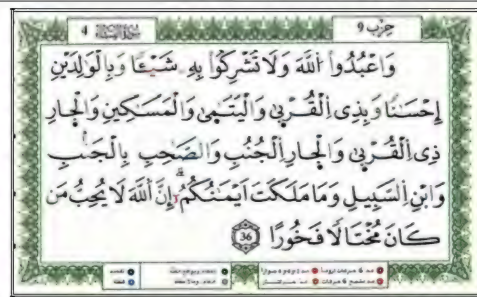 سُورَةُ النِّسَاءِ 4 حِزْب 9
وَاعْبُدُوا اْللَّهَ وَلَا تُشْرِكُواْ بِهِۦ شَيْـًٔا وَبِالْوَٰلِدَيْنِ
إِحْسَٰنًا وَبِذِى اِلْقُرْبىٰ وَالْيَتَٰمىٰ وَالْمَسَٰكِينِ وَالْجارِ
ذِى اِلْقُرْبىٰ وَالْجارِ اِلْجُنُبِ وَالصَّٰحِبِ بِالْجَنۢبِ
وَابْنِ اِلسَّبِيلِ وَمَا مَلَكَتَ اَيْمَٰنُكُمُۥٓ إِنَّ اَللَّهَ لَا يُحِبُّ مَن
كَانَ مُخْتَالًا فَخُورًا 36